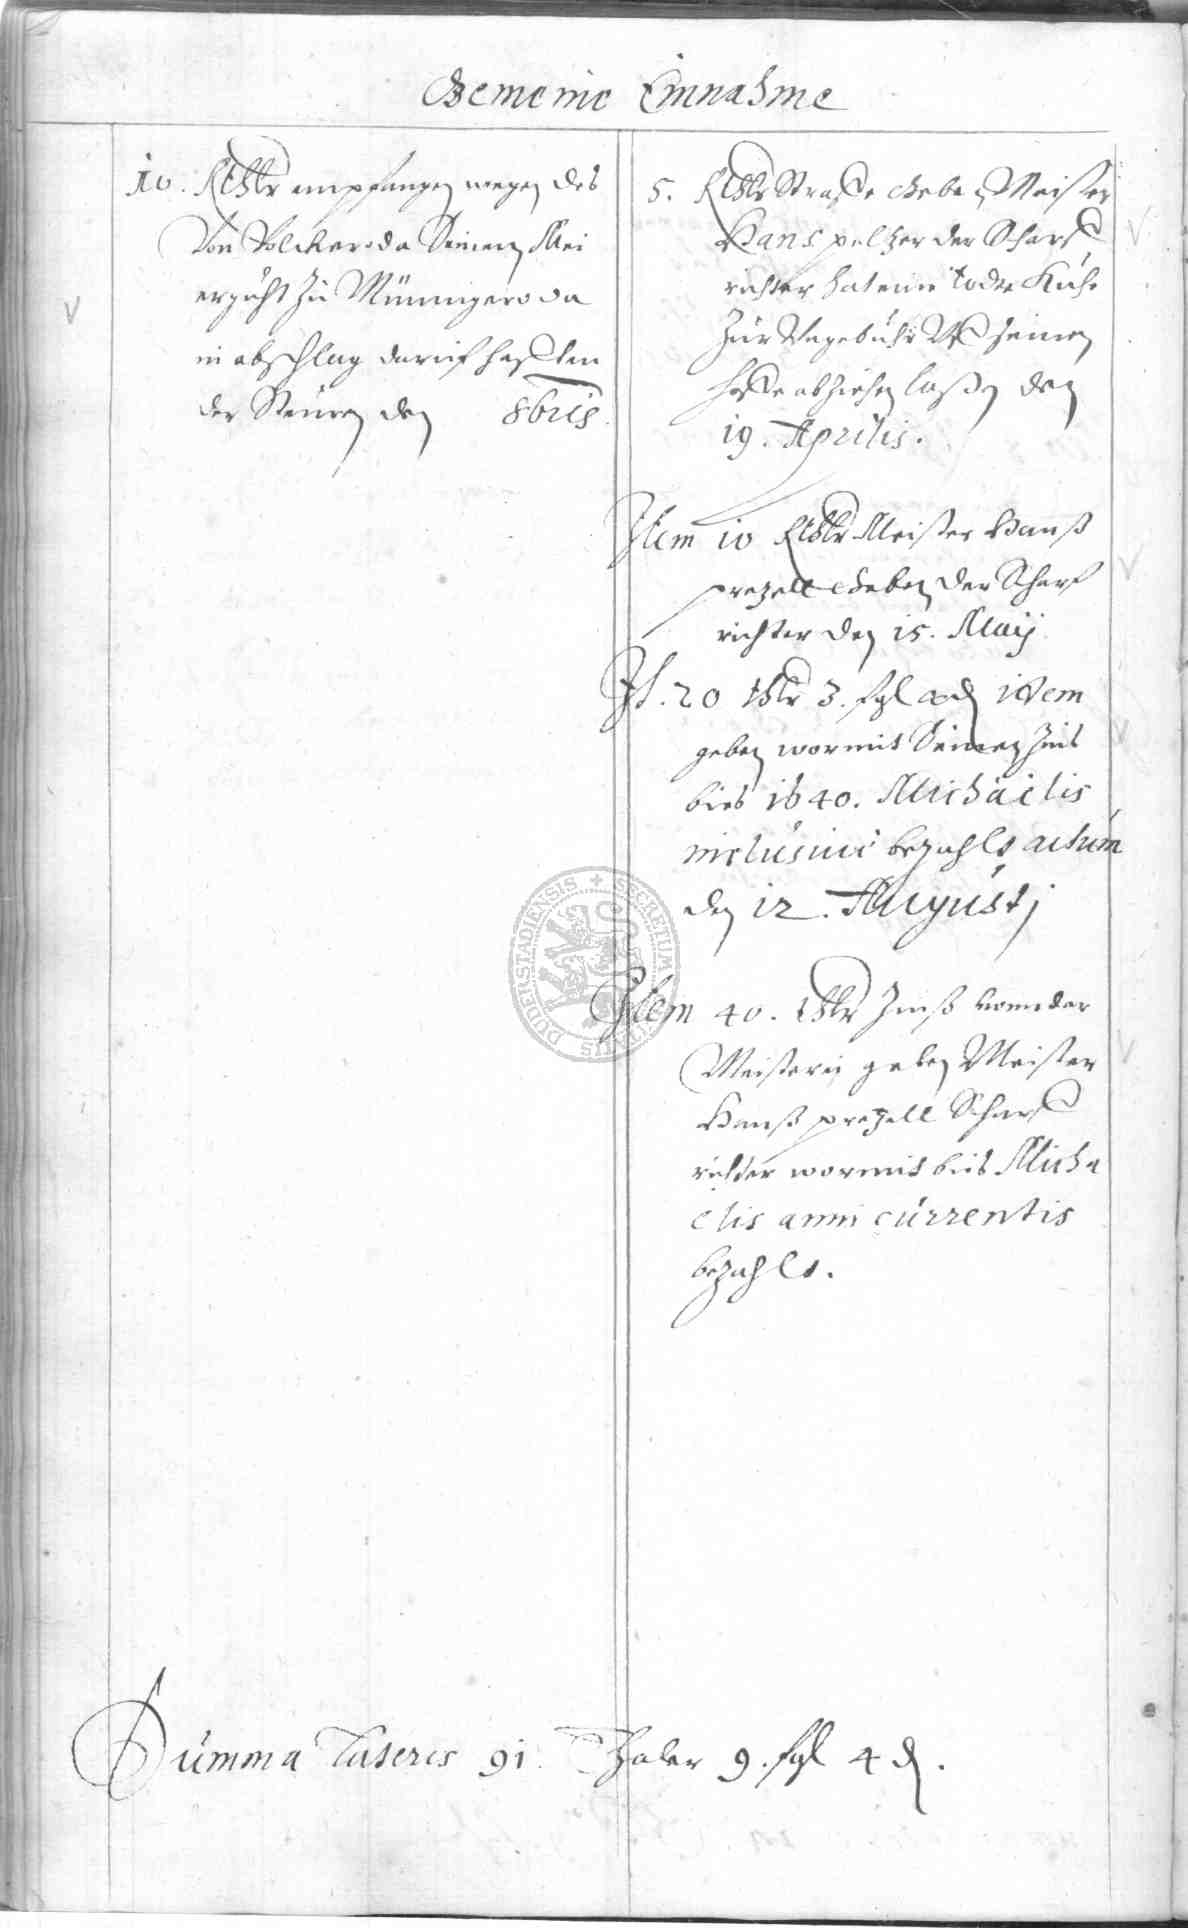 Gemeine Einnahme
10. Rthlr empfangen wegen des
Von Volckeroda Seinen Mei
erguht zu Minnigeroda
in abschlag daruf haften
der Steuren den 8bris
5. Rthlr Straffe Geben Meister
Hans peltzer der Scharf
richter hat eine tode Kuhe
zur Ungebuhr seinen
abziehen laßen den
19. Aprilis.
Item 10 Rthlr Meister Hanß
prezell Geben der Scharf
richter den 15. Maij
It. 20 thlr 3. ßgl idem
geben wormit Seinen Zins
bies 1640. Michaelis
inclusive bezahlt actum
den 12. Augustj
Item 40. thlr Zinß von der
Meisterei geben Meister
Hanß prezell Scharf
richter wormit bis Micha
elis anni currentis
bezahlt.
Summa Lateris 91. Thaler 9. ßgl 4 d.
DUDERSTADIENSIS + SECRETUM CIVITATIS